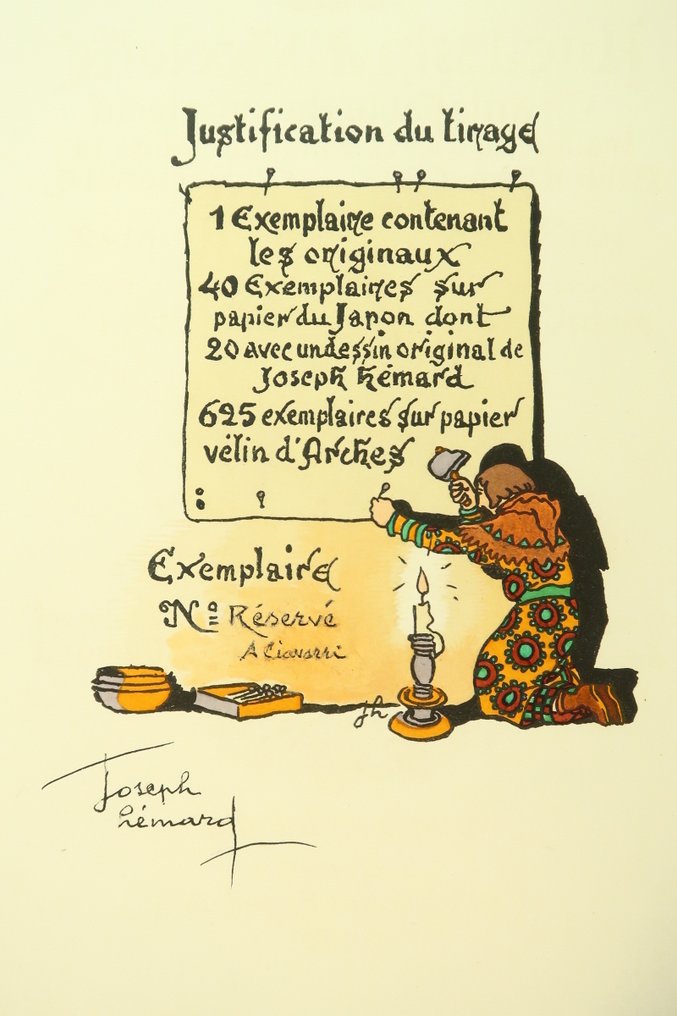 Justification du tirage
1 Exemplaire contenant
les originaux
40 Exemplaires sur
papier du Japon dont
20 avec un dessin original de
Joseph Hémard
625 exemplaires sur papier
vélin d'Arches
Exemplaire
No Réservé
A Ciavarri
jh
Joseph
hémard